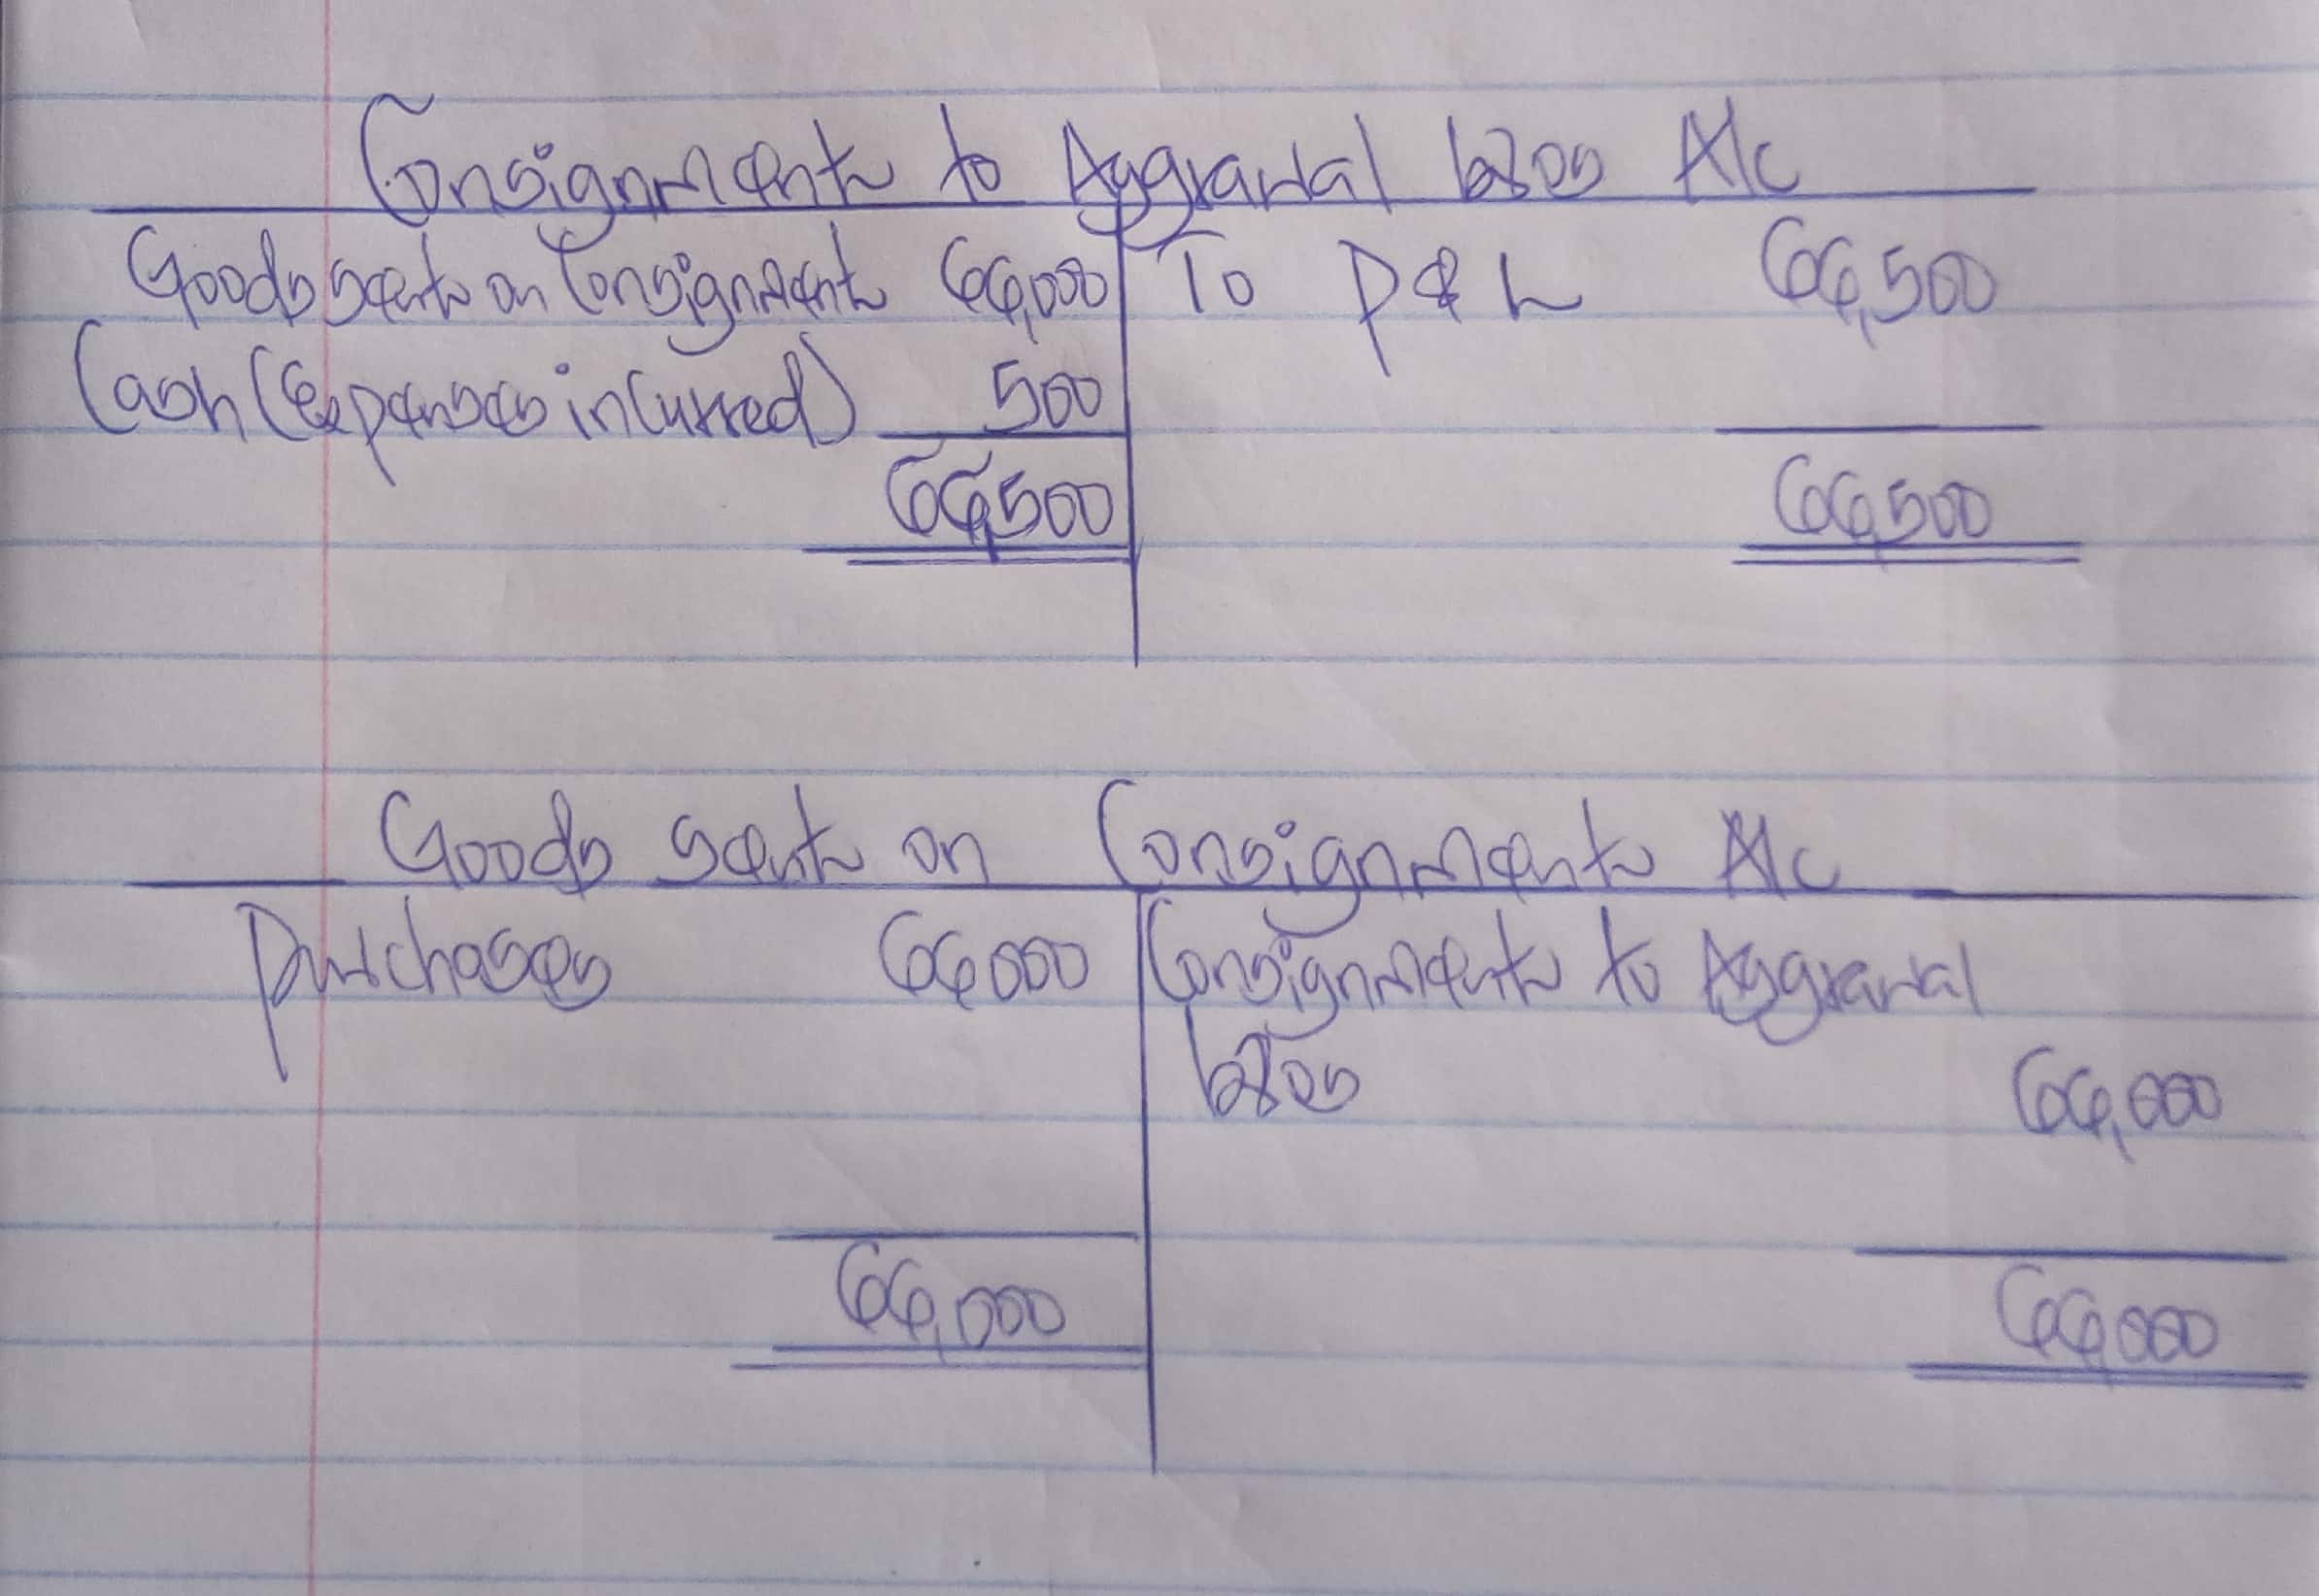 Consignment to Aggrawal bros A/c
Goods sent on Consignment 66,000 To P & L 66,500
Cash (Expenses incurred) 500
66,500 66,500
Goods sent on Consignment A/c
Purchases 66,000 Consignment to Aggrawal
bros 66,000
66,000 66,000